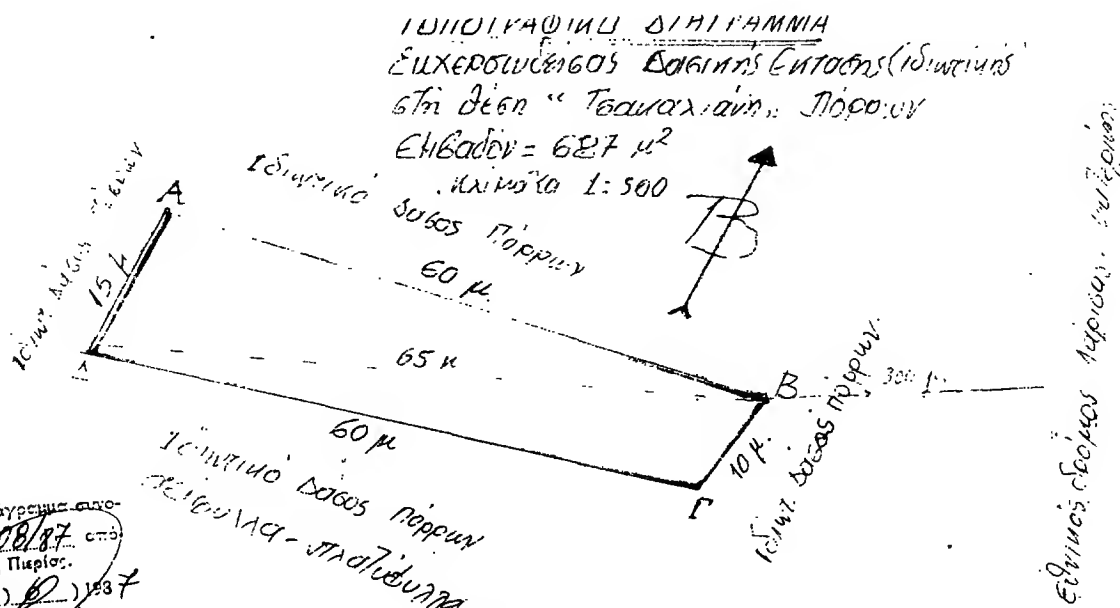 ΤΟΠΟΓΡΑΦΙΚΟ ΔΙΑΓΡΑΜΜΑ
Εκχερσωθείσας Δασικής Εκτασης (ιδιωτικής
στη θέση " Τσακαλιάνη „ Πόρρων
Εμβαδόν = 687 μ²
Κλίμακα 1:500
Β
Ιδιωτικό
Δάσος Πόρρων
Α
60 μ.
Ιδιωτ. Δάσος
15 μ
65 μ
Β
300 μ
60 μ
10 μ.
Γ
Ιδιωτ. Δάσος Πόρρων.
Ιδιωτικό Δάσος Πόρρων
πλατύφυλλα
Εθνικός δρόμος Λάρισας
08/87 από
Πιερίας.
1987